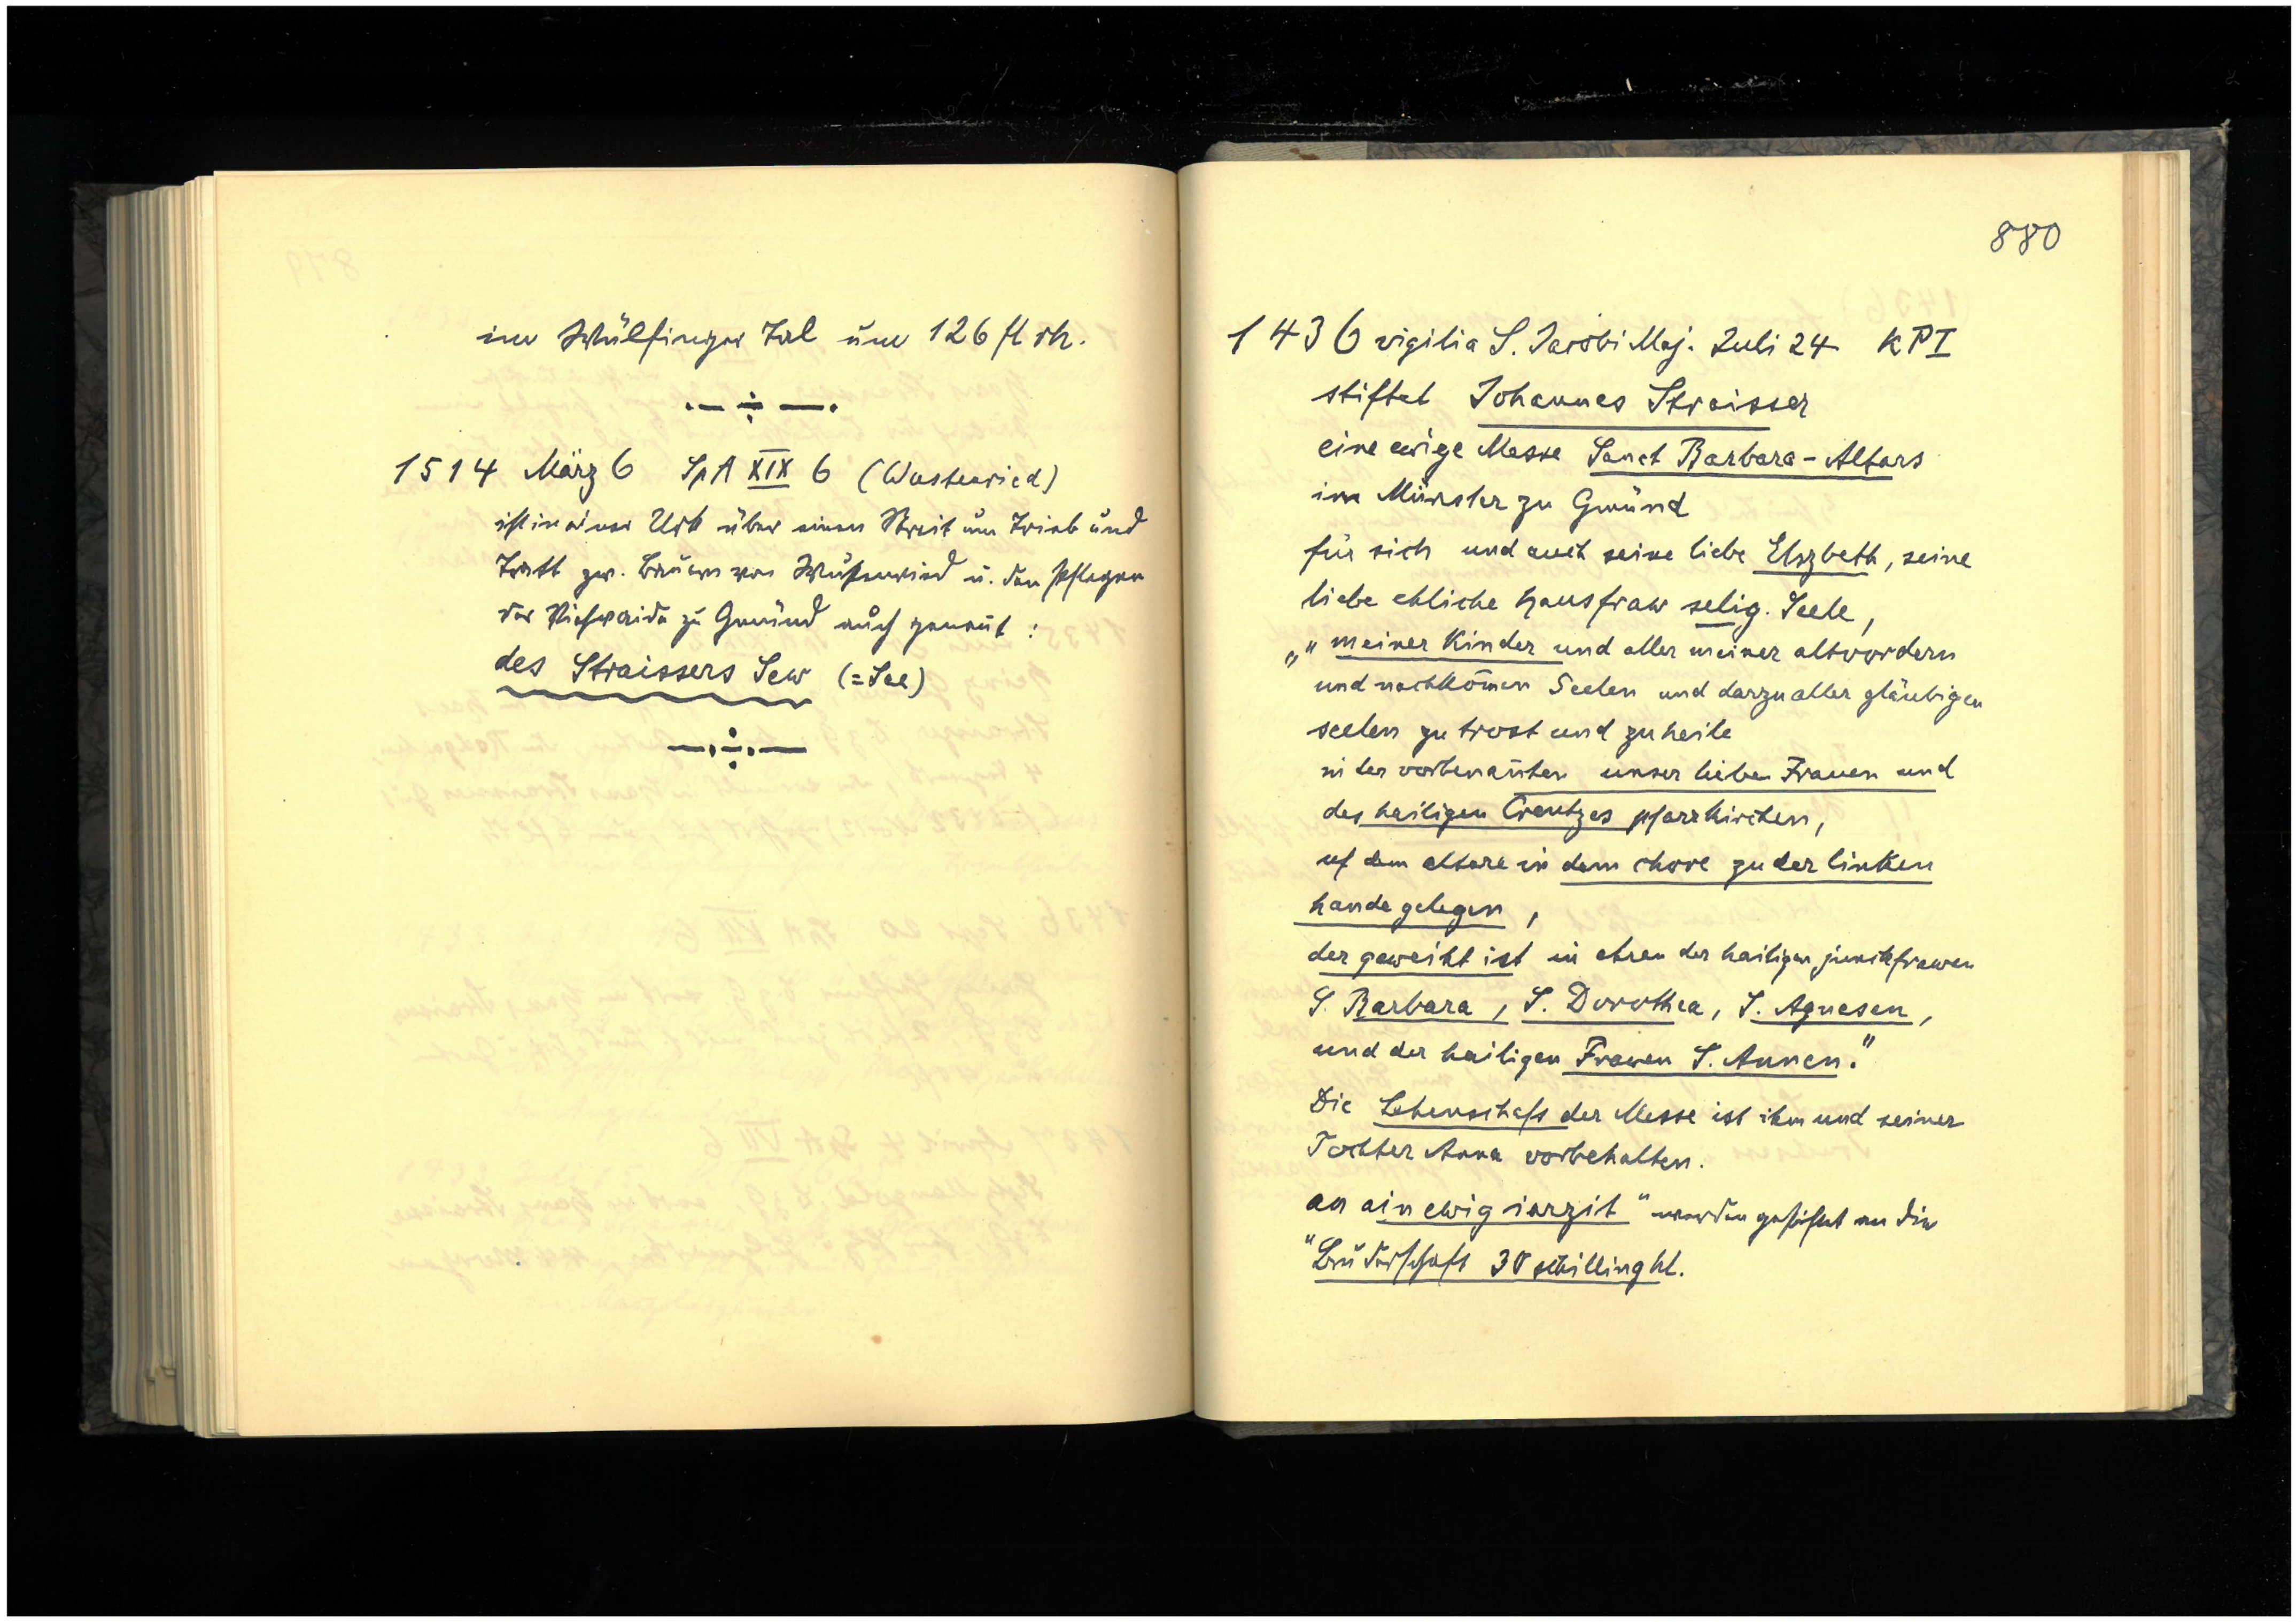 im Wülfinger Tal um 126 fl rh.
1514 März 6 SpA XIX 6 (Wustenried)
ist in einer Urk über einen Streit um Trieb und
Tratt zw. Bauern von Wustenried u. den Pflegern
der Viehweide zu Gmünd auch genant:
des Straissers Sew (=See)
880
1436 vigilia S. Jacobi Maj. Juli 24 KPI
stiftet Johannes Straisser
eine ewige Messe Sanct Barbara-Altars
im Münster zu Gmünd
für sich und auch seine liebe Elszbeth, seine
liebe ehliche Hausfraw selig. Seele,
„" meiner Kinder und aller meiner altvordern
und nachkom̄en Seelen und darzu aller gläubigen
seelen zu trost und zu heile
in der vorbenan̄ten unser lieben Frauen und
des heiligen Creutzes pfarrkirchen,
uf dem altare in dem chore zu der linken
hande gelegen,
der geweiht ist in ehren der hailigen junckfrawen
S. Barbara, S. Dorothea, S. Agnesen,
und der hailigen Frawen S. Annen."
Die Lehenschaft der Messe ist ihm und seiner
Tochter Anna vorbehalten.
an ain ewig iarzit" werden gestiftet an die
"Bruderschaft 30 schilling hl.